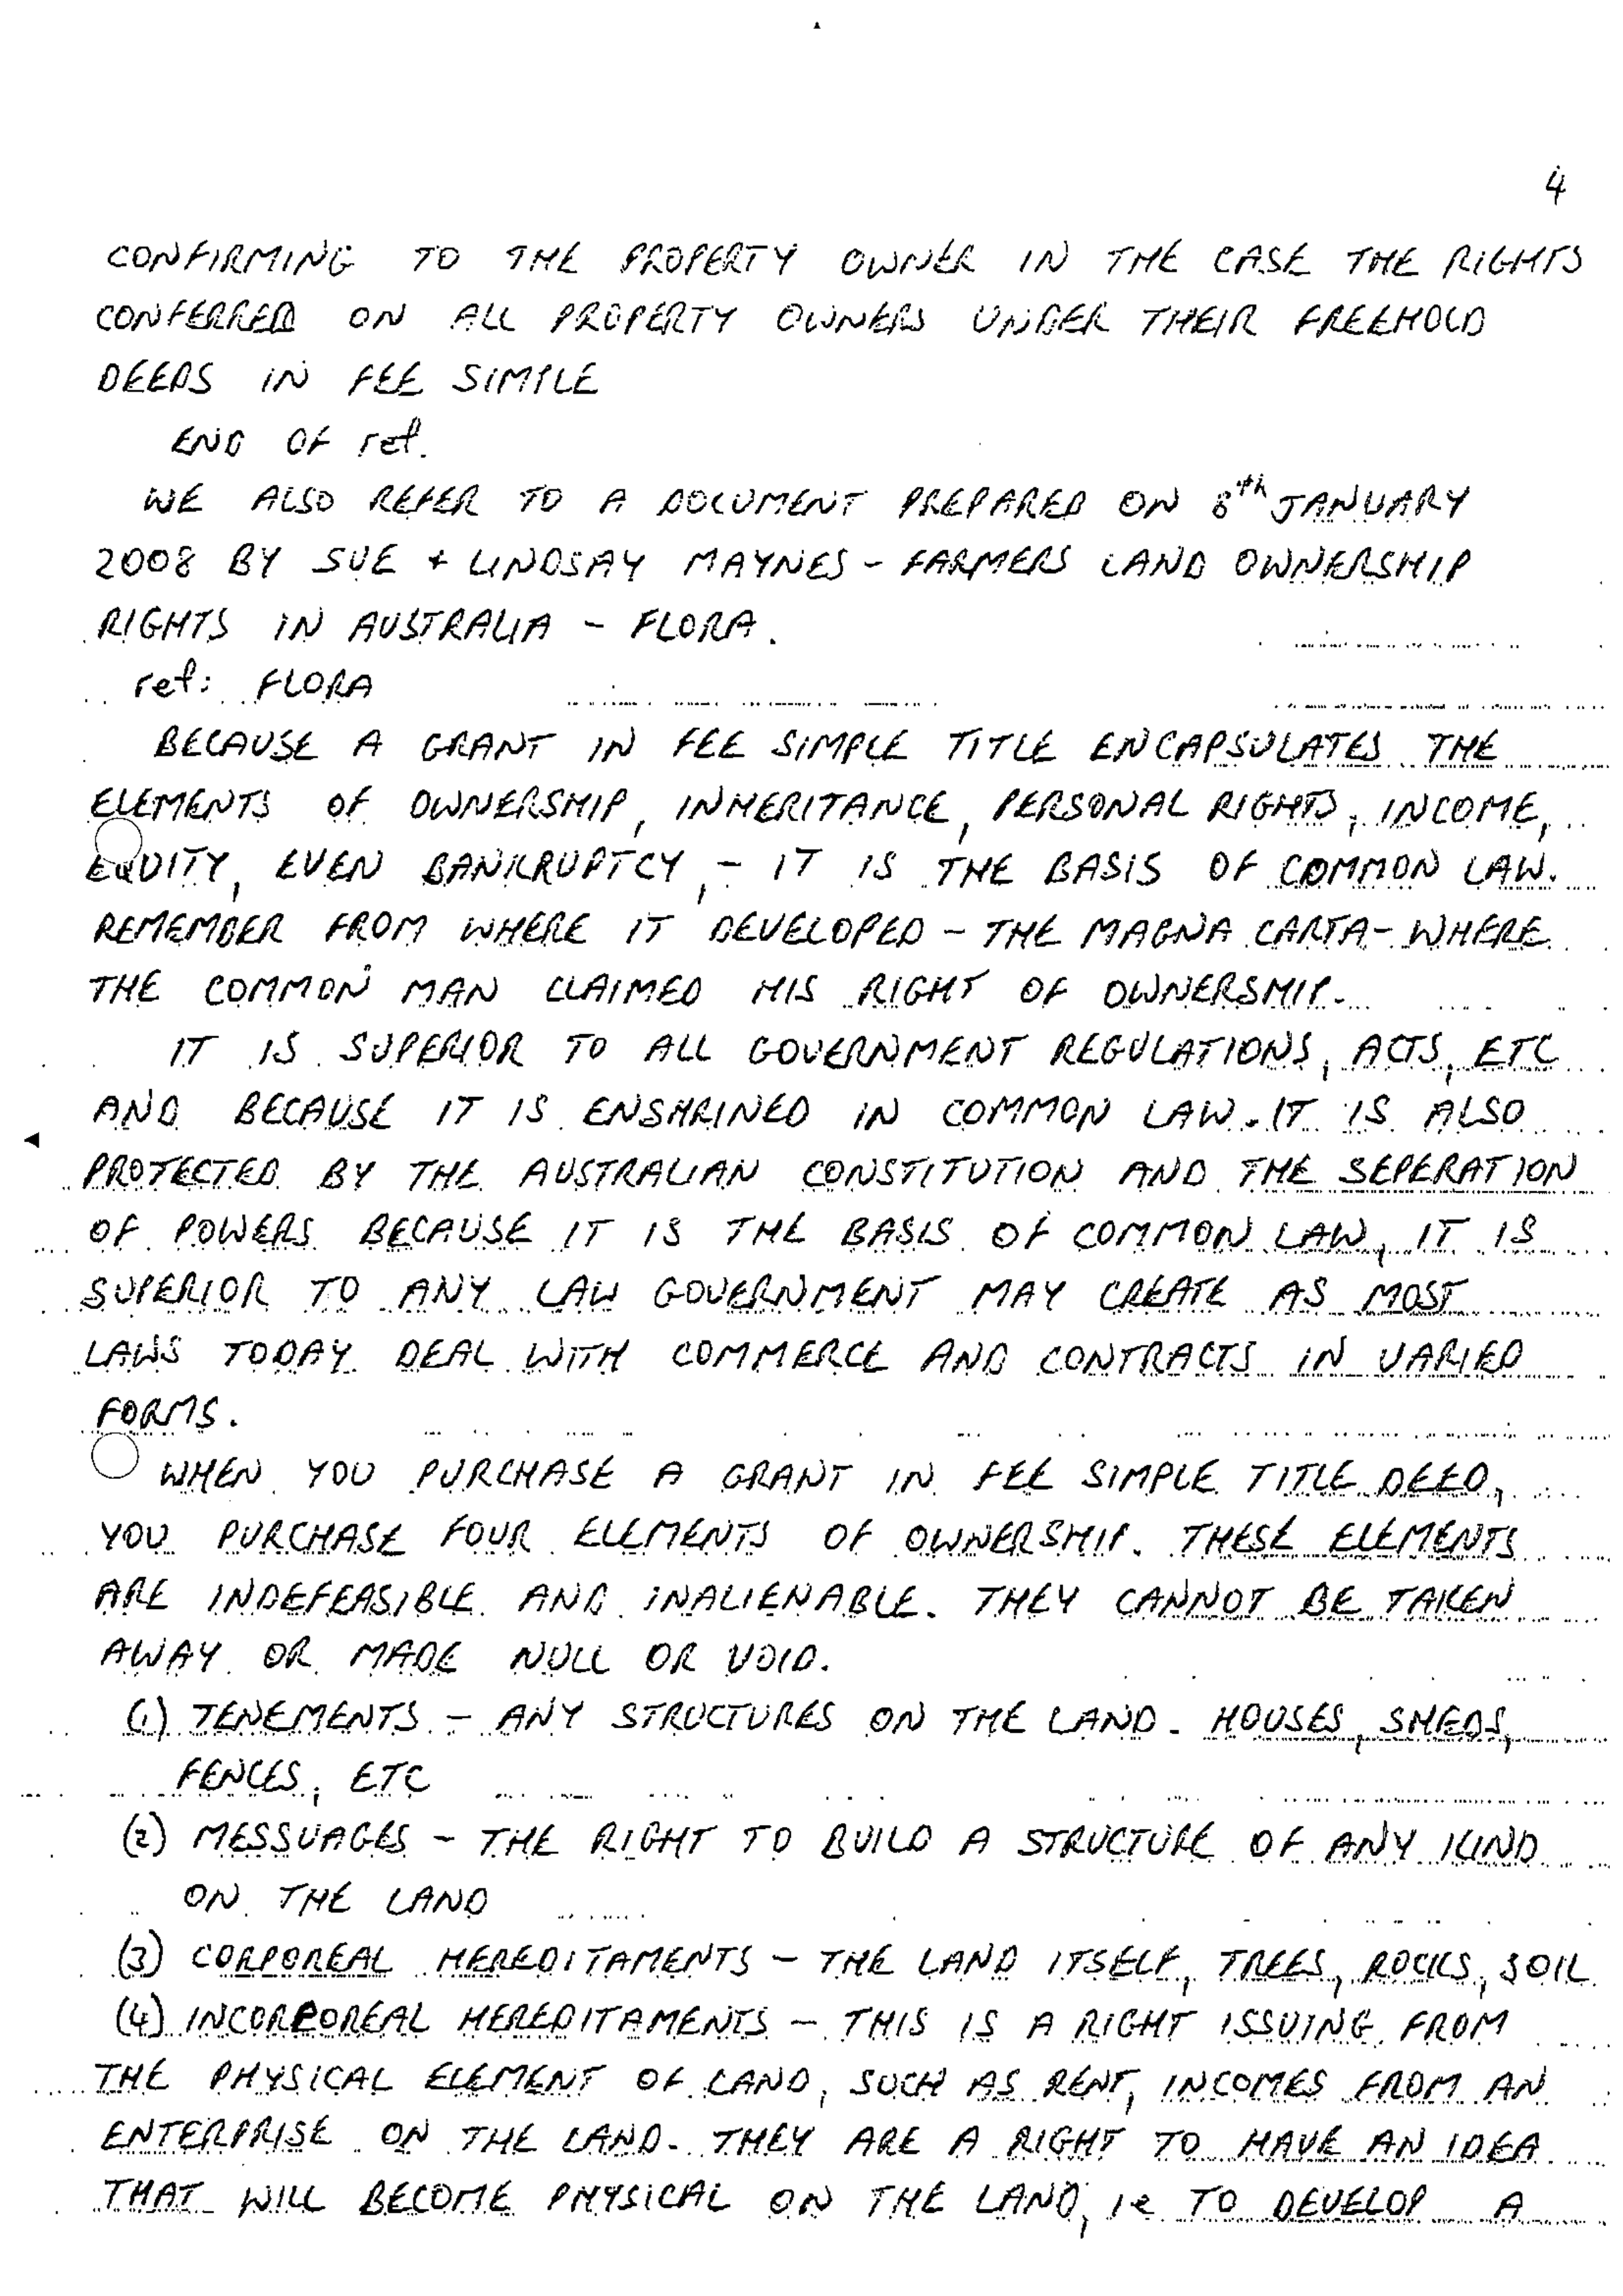 4
CONFIRMING TO THE PROPERTY OWNER IN THE CASE THE RIGHTS
CONFERRED ON ALL PROPERTY OWNERS UNDER THEIR FREEHOLD
DEEDS IN FEE SIMPLE
END OF ref.
WE ALSO REFER TO A DOCUMENT PREPARED ON 8th JANUARY
2008 BY SUE + LINDSAY MAYNES - FARMERS LAND OWNERSHIP
RIGHTS IN AUSTRALIA - FLORA.
ref: FLORA
BECAUSE A GRANT IN FEE SIMPLE TITLE ENCAPSULATES THE
ELEMENTS OF OWNERSHIP, INHERITANCE, PERSONAL RIGHTS, INCOME,
EQUITY, EVEN BANKRUPTCY, - IT IS THE BASIS OF COMMON LAW.
REMEMBER FROM WHERE IT DEVELOPED - THE MAGNA CARTA - WHERE
THE COMMON MAN CLAIMED HIS RIGHT OF OWNERSHIP.
IT IS SUPERIOR TO ALL GOVERNMENT REGULATIONS, ACTS, ETC
AND BECAUSE IT IS ENSHRINED IN COMMON LAW. IT IS ALSO
PROTECTED BY THE AUSTRALIAN CONSTITUTION AND THE SEPERATION
OF POWERS BECAUSE IT IS THE BASIS OF COMMON LAW, IT IS
SUPERIOR TO ANY LAW GOVERNMENT MAY CREATE AS MOST
LAWS TODAY DEAL WITH COMMERCE AND CONTRACTS IN VARIED
FORMS.
WHEN YOU PURCHASE A GRANT IN FEE SIMPLE TITLE DEED,
YOU PURCHASE FOUR ELEMENTS OF OWNERSHIP. THESE ELEMENTS
ARE INDEFEASIBLE AND INALIENABLE. THEY CANNOT BE TAKEN
AWAY OR MADE NULL OR VOID.
(1) TENEMENTS - ANY STRUCTURES ON THE LAND. HOUSES, SHEDS,
FENCES, ETC
(2) MESSUAGES - THE RIGHT TO BUILD A STRUCTURE OF ANY KIND
ON THE LAND
(3) CORPOREAL HEREDITAMENTS - THE LAND ITSELF, TREES, ROCKS, SOIL
(4) INCORPOREAL HEREDITAMENTS - THIS IS A RIGHT ISSUING FROM
THE PHYSICAL ELEMENT OF LAND, SUCH AS RENT, INCOMES FROM AN
ENTERPRISE ON THE LAND. THEY ARE A RIGHT TO HAVE AN IDEA
THAT WILL BECOME PHYSICAL ON THE LAND, ie TO DEVELOP A